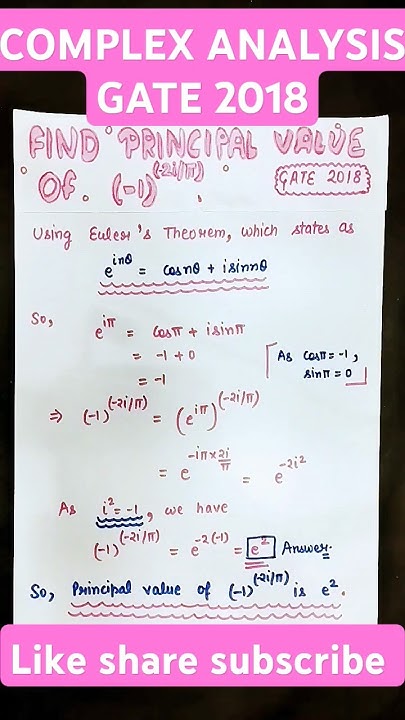 COMPLEX ANALYSIS
GATE 2018
FIND PRINCIPAL VALUE
OF (-1)^(-2i/π)
GATE 2018
Using Euler's Theorem, which states as
e^inθ = cosnθ + isinnθ
So,
e^iπ = cosπ + isinπ
= -1 + 0
= -1
As cosπ = -1,
sinπ = 0
⇒ (-1)^(-2i/π) = (e^iπ)^(-2i/π)
= e^-iπ × 2i/π = e^-2i²
As i² = -1, we have
(-1)^(-2i/π) = e^-2(-1) = e² Answer.
So, Principal value of (-1)^(-2i/π) is e².
Like share subscribe